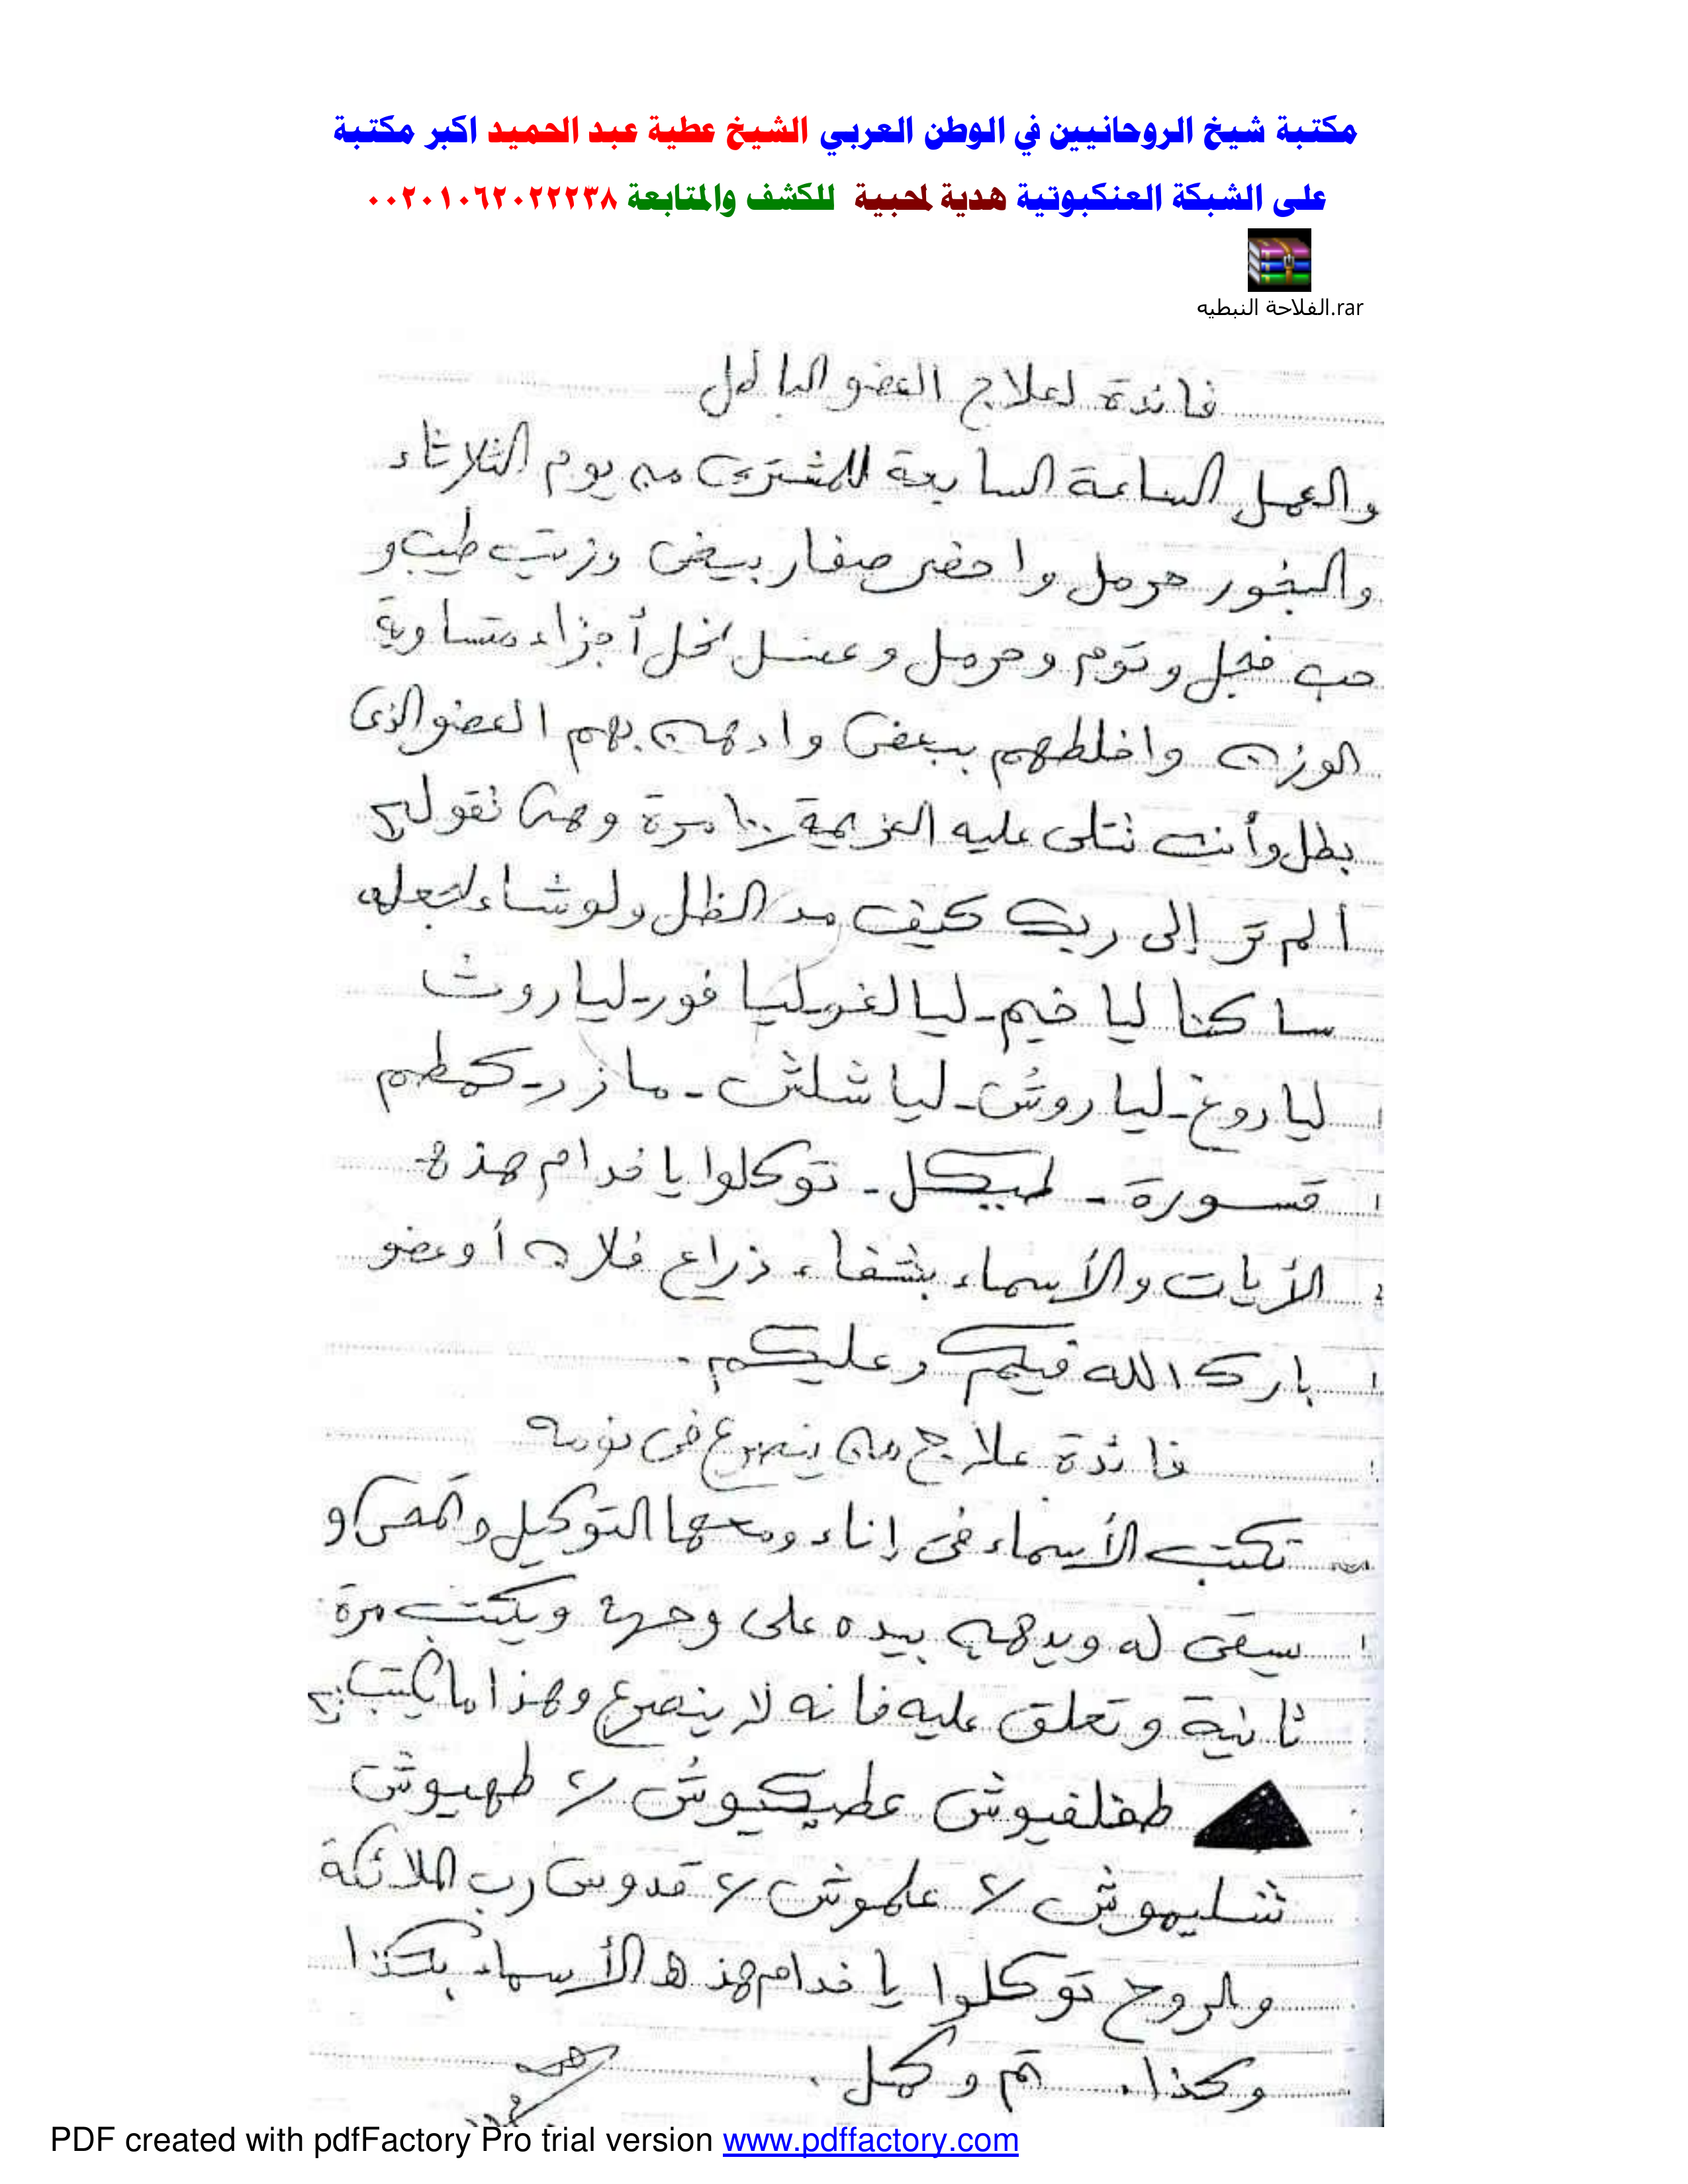 مكتبة شيخ الروحانيين في الوطن العربي الشيخ عطية عبد الحميد اكبر مكتبة
على الشبكة العنكبوتية هدية لمحبية للكشف والمتابعة ٠٠٢٠١٠٦٢٠٢٢٢٣٨
الفلاحة النبطيه.rar
فائدة لعلاج العضو الباطل
والعمل الساعة السابعة للمشترى من يوم الثلاثاء
والبخور حرمل واحضر صفار بيض وزيت طيب و
حب فجل وتوم وحرمل وعسل نحل أجزاء متساوية
الوزن واخلطهم ببعض وادهن بهم العضو الذى
بطل وأنت تتلى عليه العزيمة ١٠٠ مرة وهى تقول
ألم تر إلى ربك كيف مد الظل ولو شاء لجعله
ساكنا ليا خيم - ليا لغو - ليا فور - ليا روث
ليا روغ - ليا روش - ليا شلش - مازر - كمطم
قسورة - طيكل - توكلوا يا خدام هذه
الأيات والأسماء بشفاء ذراع فلان أو عضو
بارك الله فيكم وعليكم .
فائدة علاج من ينصرع فى نومه
تكتب الأسماء فى إناء ومعها التوكيل وتمحى و
سيقى له ويدهن بيده على وجهه ويكتب مرة
ثانية وتعلق عليه فانه لا ينصرع وهذا ما يكتب
طفلفيوش عطيكيوش ٢/ طهيوش
شليهوش ٢/ علموش ٢/ قدوس رب الملائكة
والروح توكلوا يا خدام هذه الأسماء بكذا
وكذا . تم وكمل .
PDF created with pdfFactory Pro trial version www.pdffactory.com